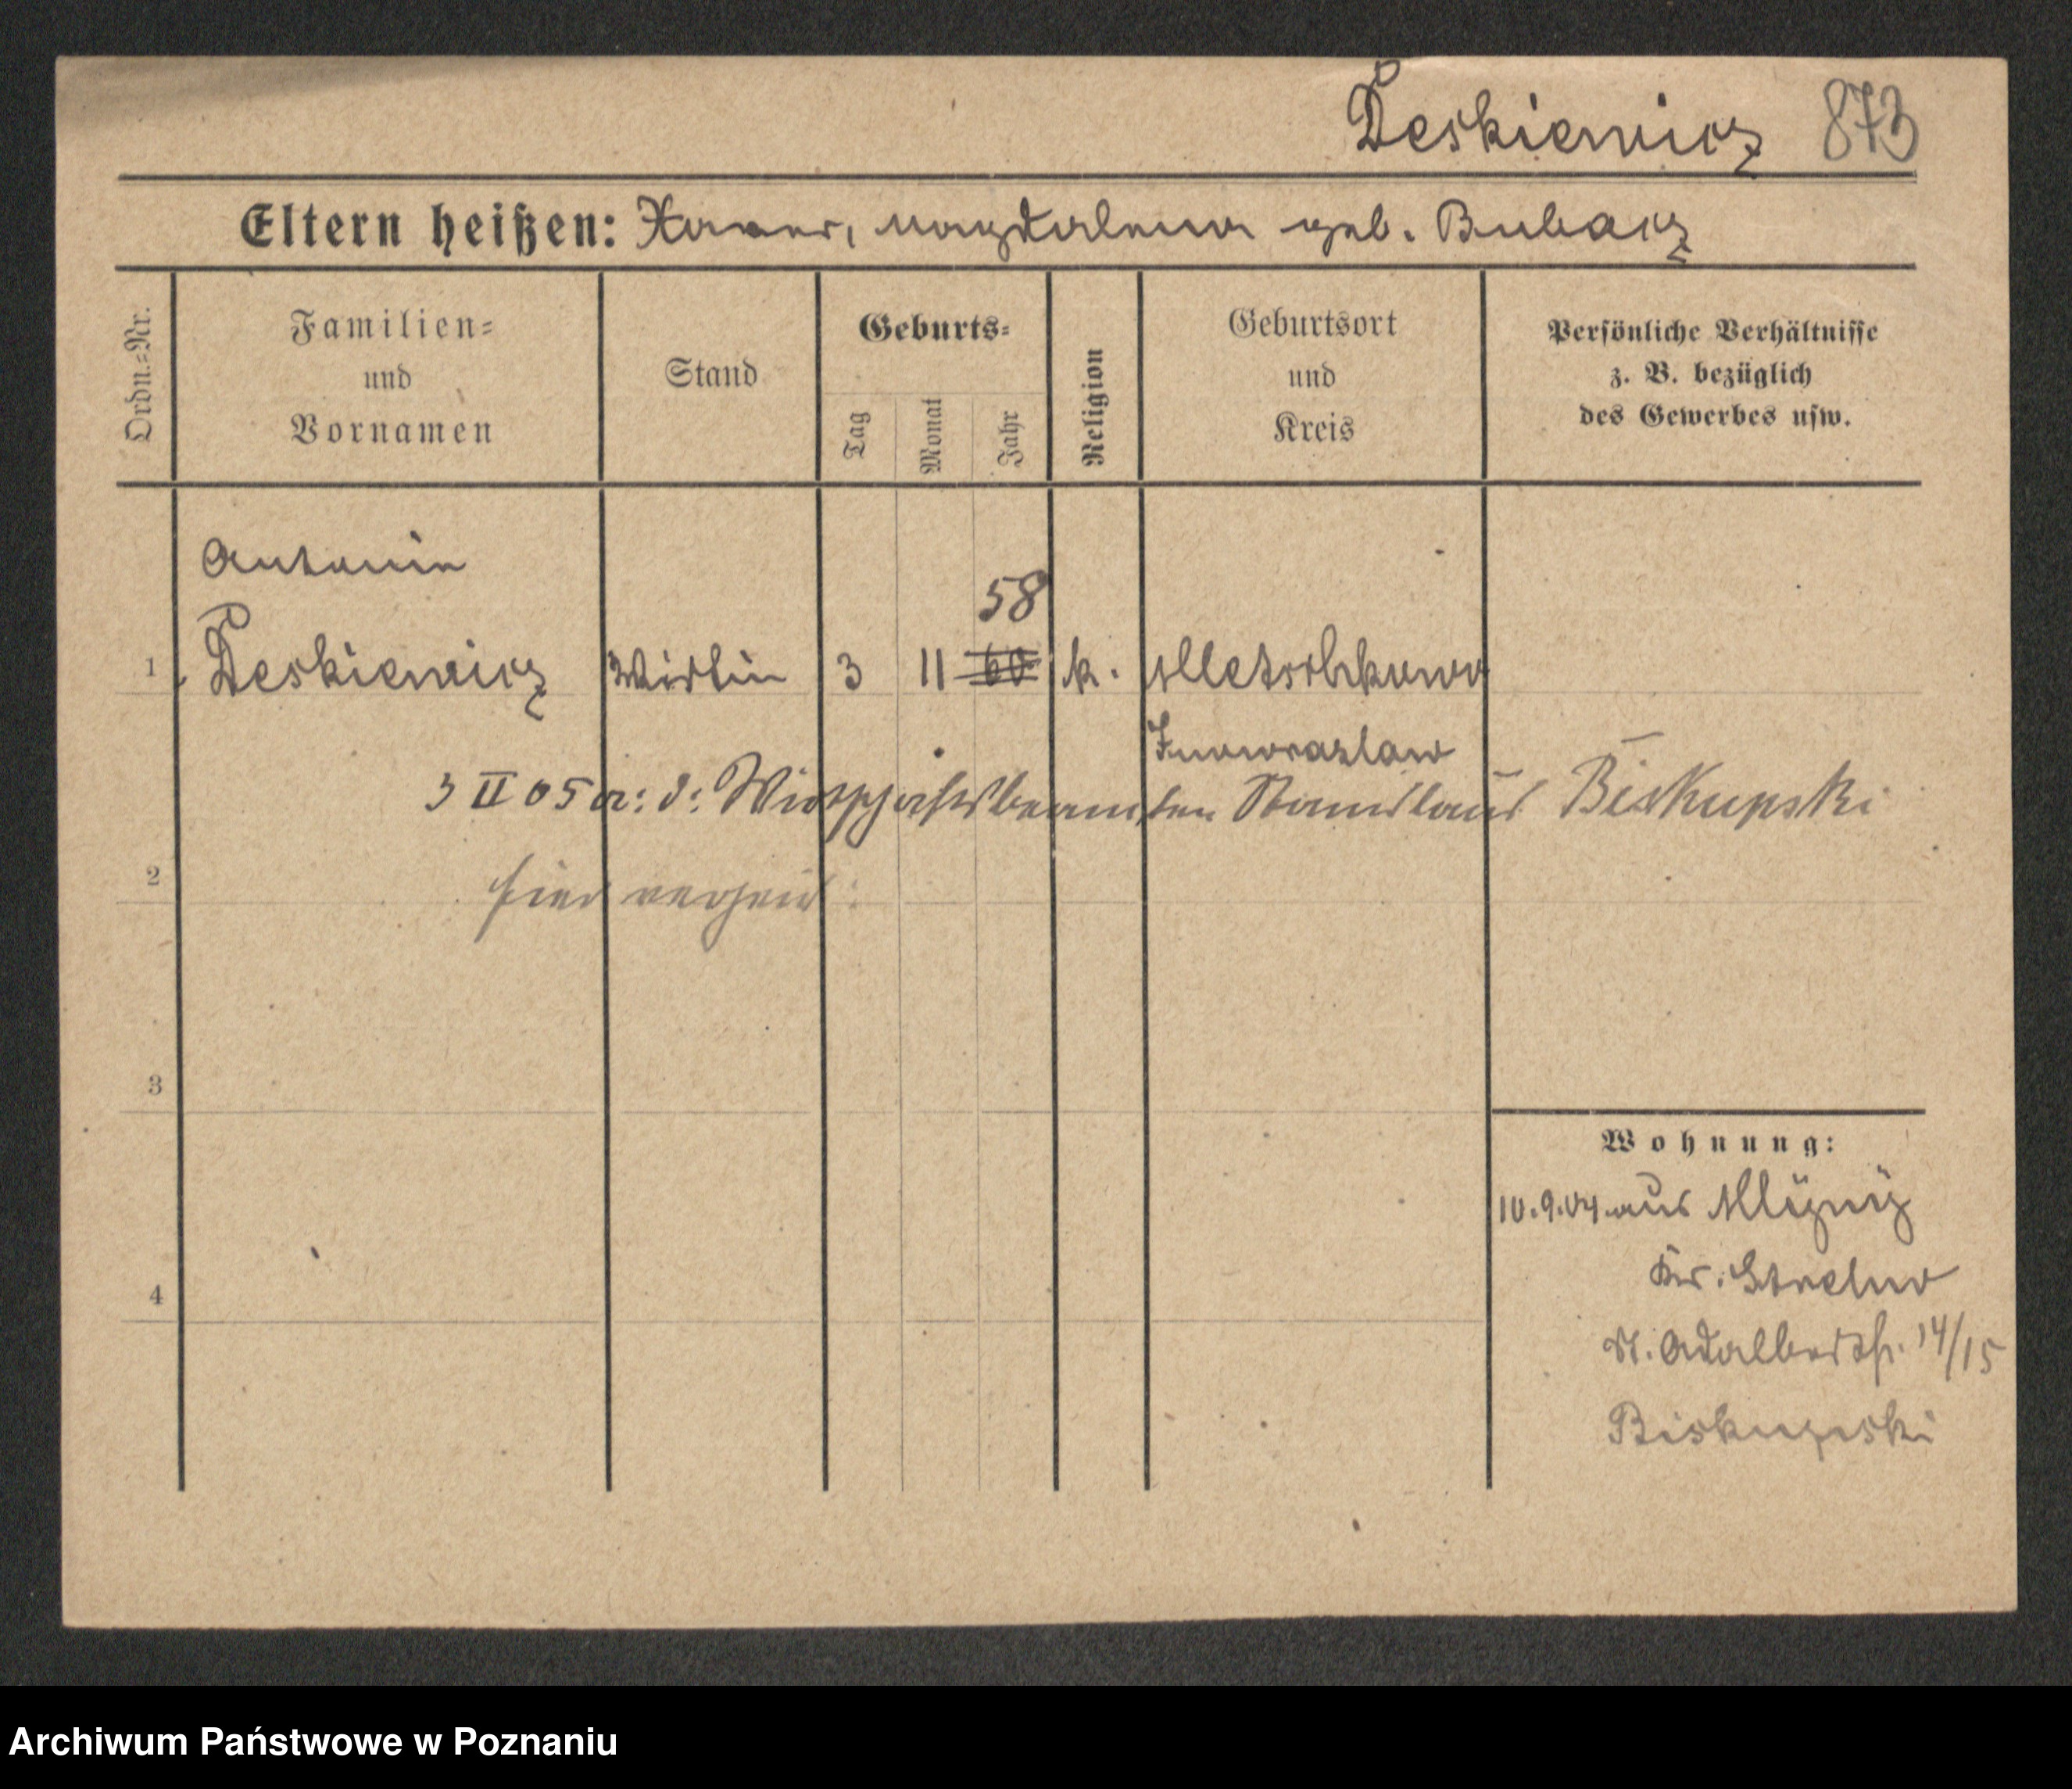 Deskiewicz 873
Eltern heißen: Xaver, Magdalena geb. Bubacz
Ordn.=Nr.
Familien=
und
Vornamen
Stand
Geburts=
Tag
Monat
Jahr
Religion
Geburtsort
und
Kreis
Persönliche Verhältnisse
z. B. bezüglich
des Gewerbes usw.
Antonie
58
1 Deskiewicz 3 11 60 k.
Inowrazlaw
3 II 05 a: d: Wirtschaftsbeamten Stanislaus Biskupski
2
3
Wohnung:
10.9.04 aus
4 Kr. Strelno
St. Adalbertstr. 14/15
Biskupski
Archiwum Państwowe w Poznaniu